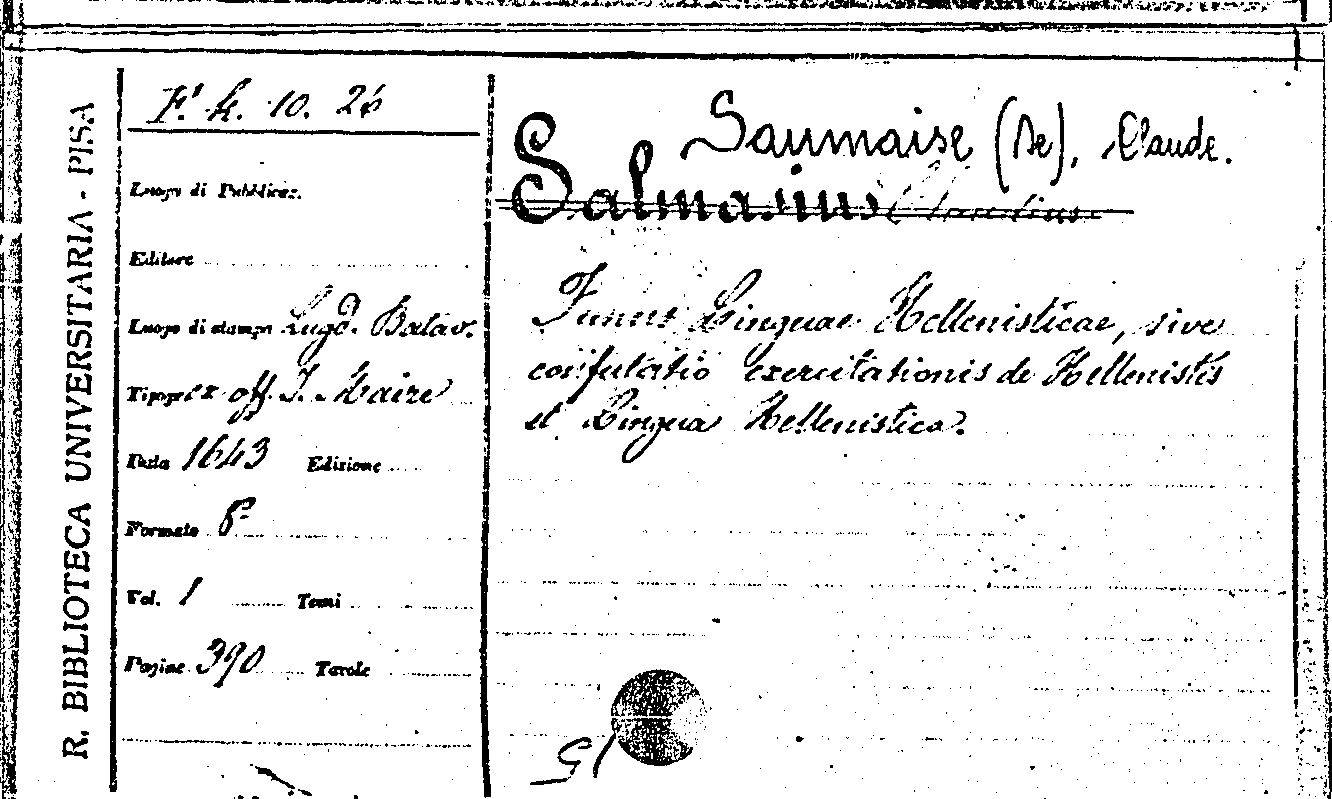 R. BIBLIOTECA UNIVERSITARIA - PISA
F. k. 10. 26
Luogo di Pubblicaz.
Editore
Luogo di stampa Lugd. Batav.
Tipogr. ex off. I. Maire
Data 1643 Edizione
Formato 8º
Vol. 1 Tomi
Pagine 390 Tavole
Saumaise (De), Claude.
Salmasius Claudius
Funus Linguae Hellenisticae, sive
confutatio exercitationis de Hellenistis
et Lingua Hellenistica.